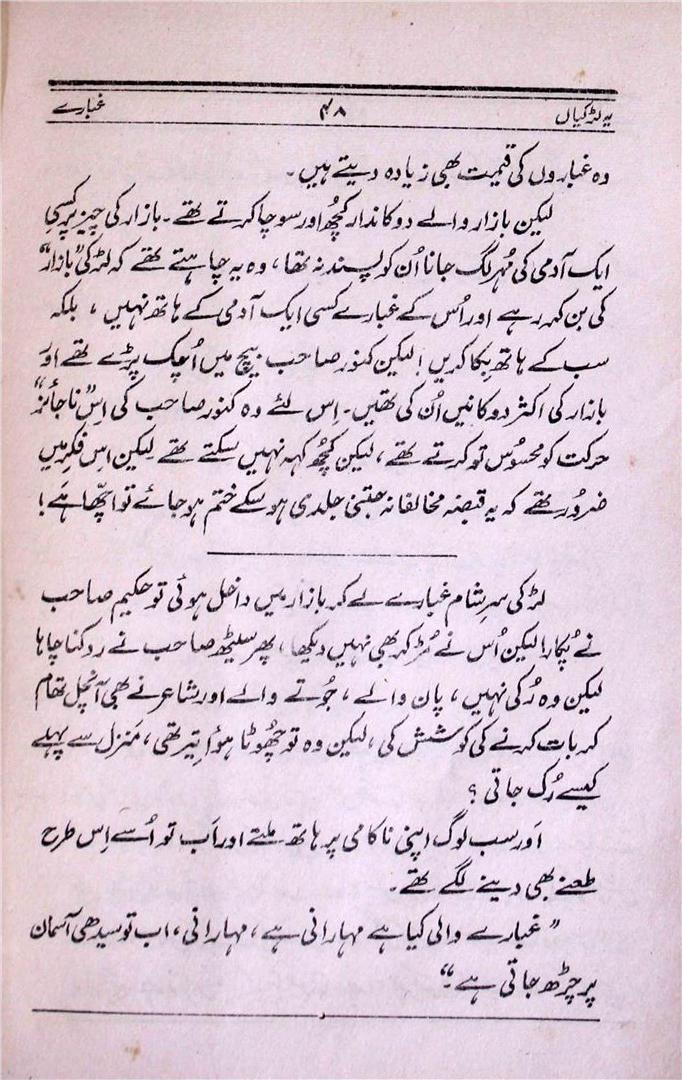 یہ لڑکیاں ۴۸ غبارے
وہ غباروں کی قیمت بھی زیادہ دیتے ہیں۔
لیکن بازار والے دوکاندار کچھ اور سوچا کرتے تھے۔ بازار کی چیز پر کسی
ایک آدمی کی مُہر لگ جانا اُن کو پسند نہ تھا، وہ یہ چاہتے تھے کہ لڑکی ”بازار“
کی بن کر رہے اور اُس کے غبارے کسی ایک آدمی کے ہاتھ نہیں، بلکہ
سب کے ہاتھ بِکا کریں! لیکن کنور صاحب بیچ میں اُچک پڑے تھے اور
بازار کی اکثر دوکانیں اُن کی تھیں۔ اِس لئے وہ کنور صاحب کی اِس ”ناجائز“
حرکت کو محسُوس تو کرتے تھے، لیکن کچھ کہہ نہیں سکتے تھے لیکن اس فکر میں
ضرور تھے کہ یہ قبضہ مخالفانہ جتنی جلدی ہو سکے ختم ہو جائے تو اچّھا ہے!
لڑکی سرِ شام غبارے لے کر بازار میں داخل ہوئی تو حکیم صاحب
نے پُکارا لیکن اُس نے مُڑ کر بھی نہیں دیکھا، پھر سیٹھ صاحب نے روکنا چاہا
لیکن وہ رُکی نہیں، پان والے، جُوتے والے اور شاعر نے بھی آنچل تھام
کر بات کرنے کی کوشش کی، لیکن وہ تو چُھوٹا ہوُا تیر تھی، مَنزل سے پہلے
کیسے رُک جاتی؟
اَور سب لوگ اپنی ناکامی پر ہاتھ ملتے اور اَب تو اُسے اِس طرح
طعنے بھی دینے لگے تھے۔
”غبارے والی کیا ہے مہارانی ہے، مہارانی، اب تو سیدھی آسمان
پر چڑھ جاتی ہے۔“